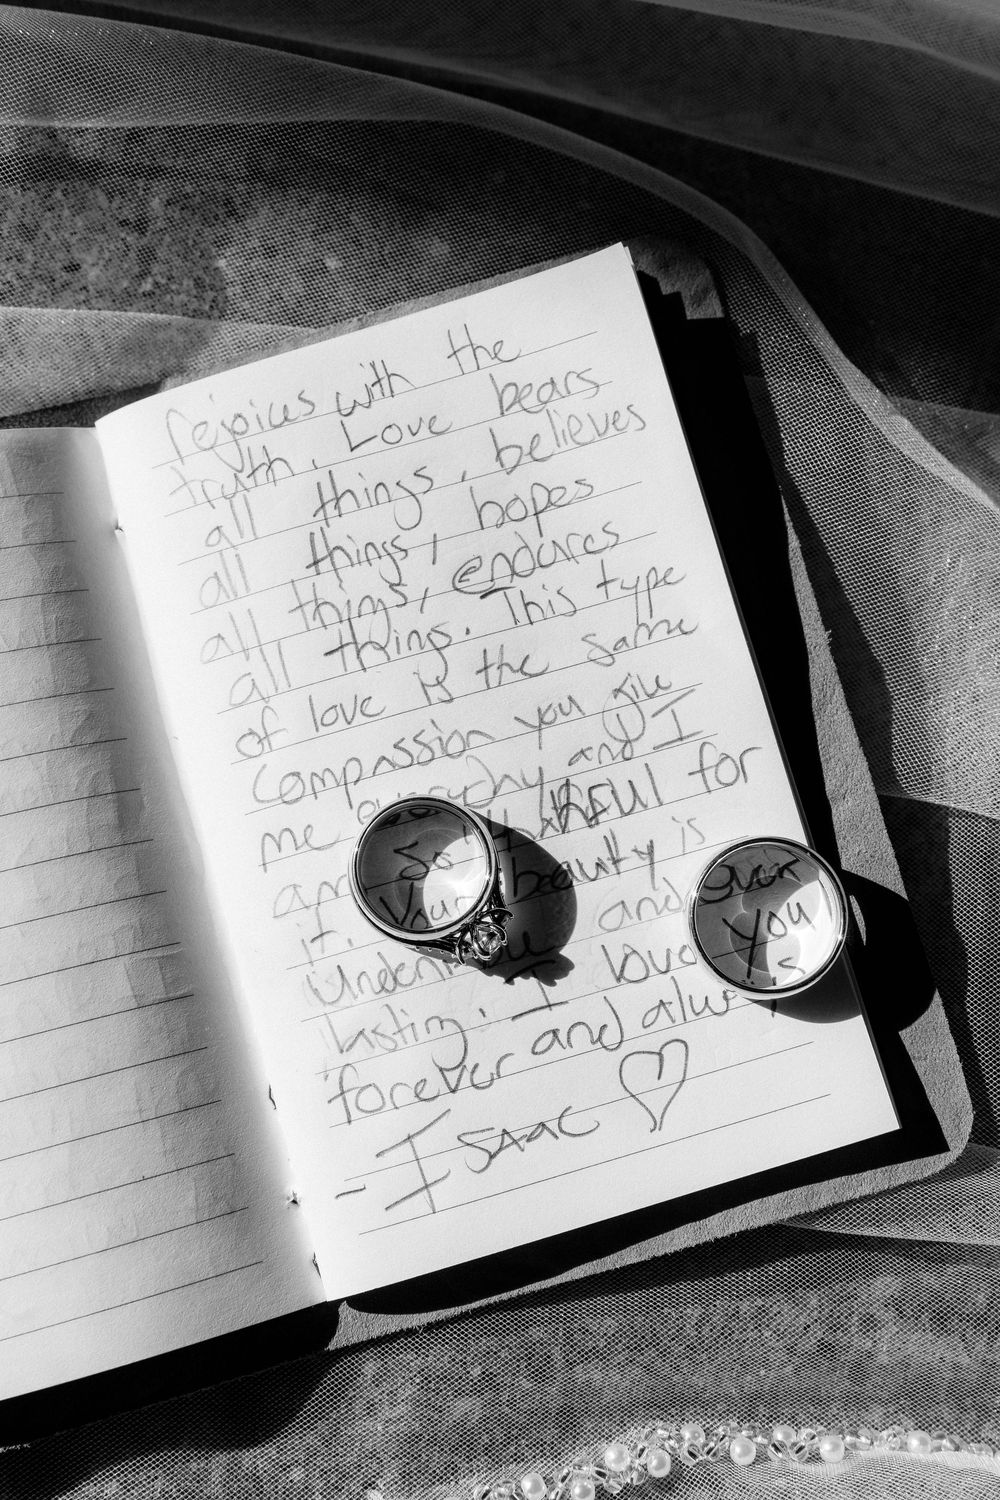 rejoices with the
truth. Love bears
all things, believes
all things, hopes
all things, endures
all things. This type
of love is the same
compassion you give
me everyday and I
am so thankful for
it. Your beauty is
undeniable and ever
lasting. I love you
forever and always
- Isaac